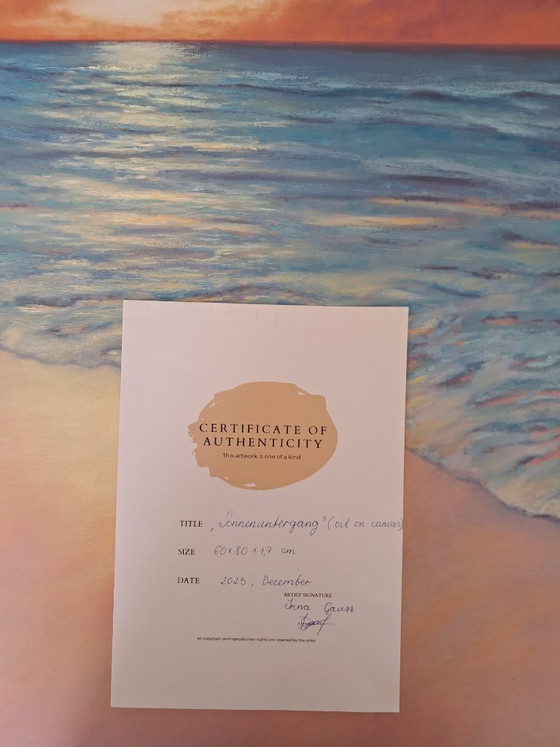 CERTIFICATE OF
AUTHENTICITY
This artwork is one of a kind
TITLE „Sonnenuntergang" (oil on canvas)
SIZE 60 x 80 x 1,7 cm
DATE 2023, December
ARTIST SIGNATURE
Irina Gauss
All copyright and reproduction rights are reserved by the artist